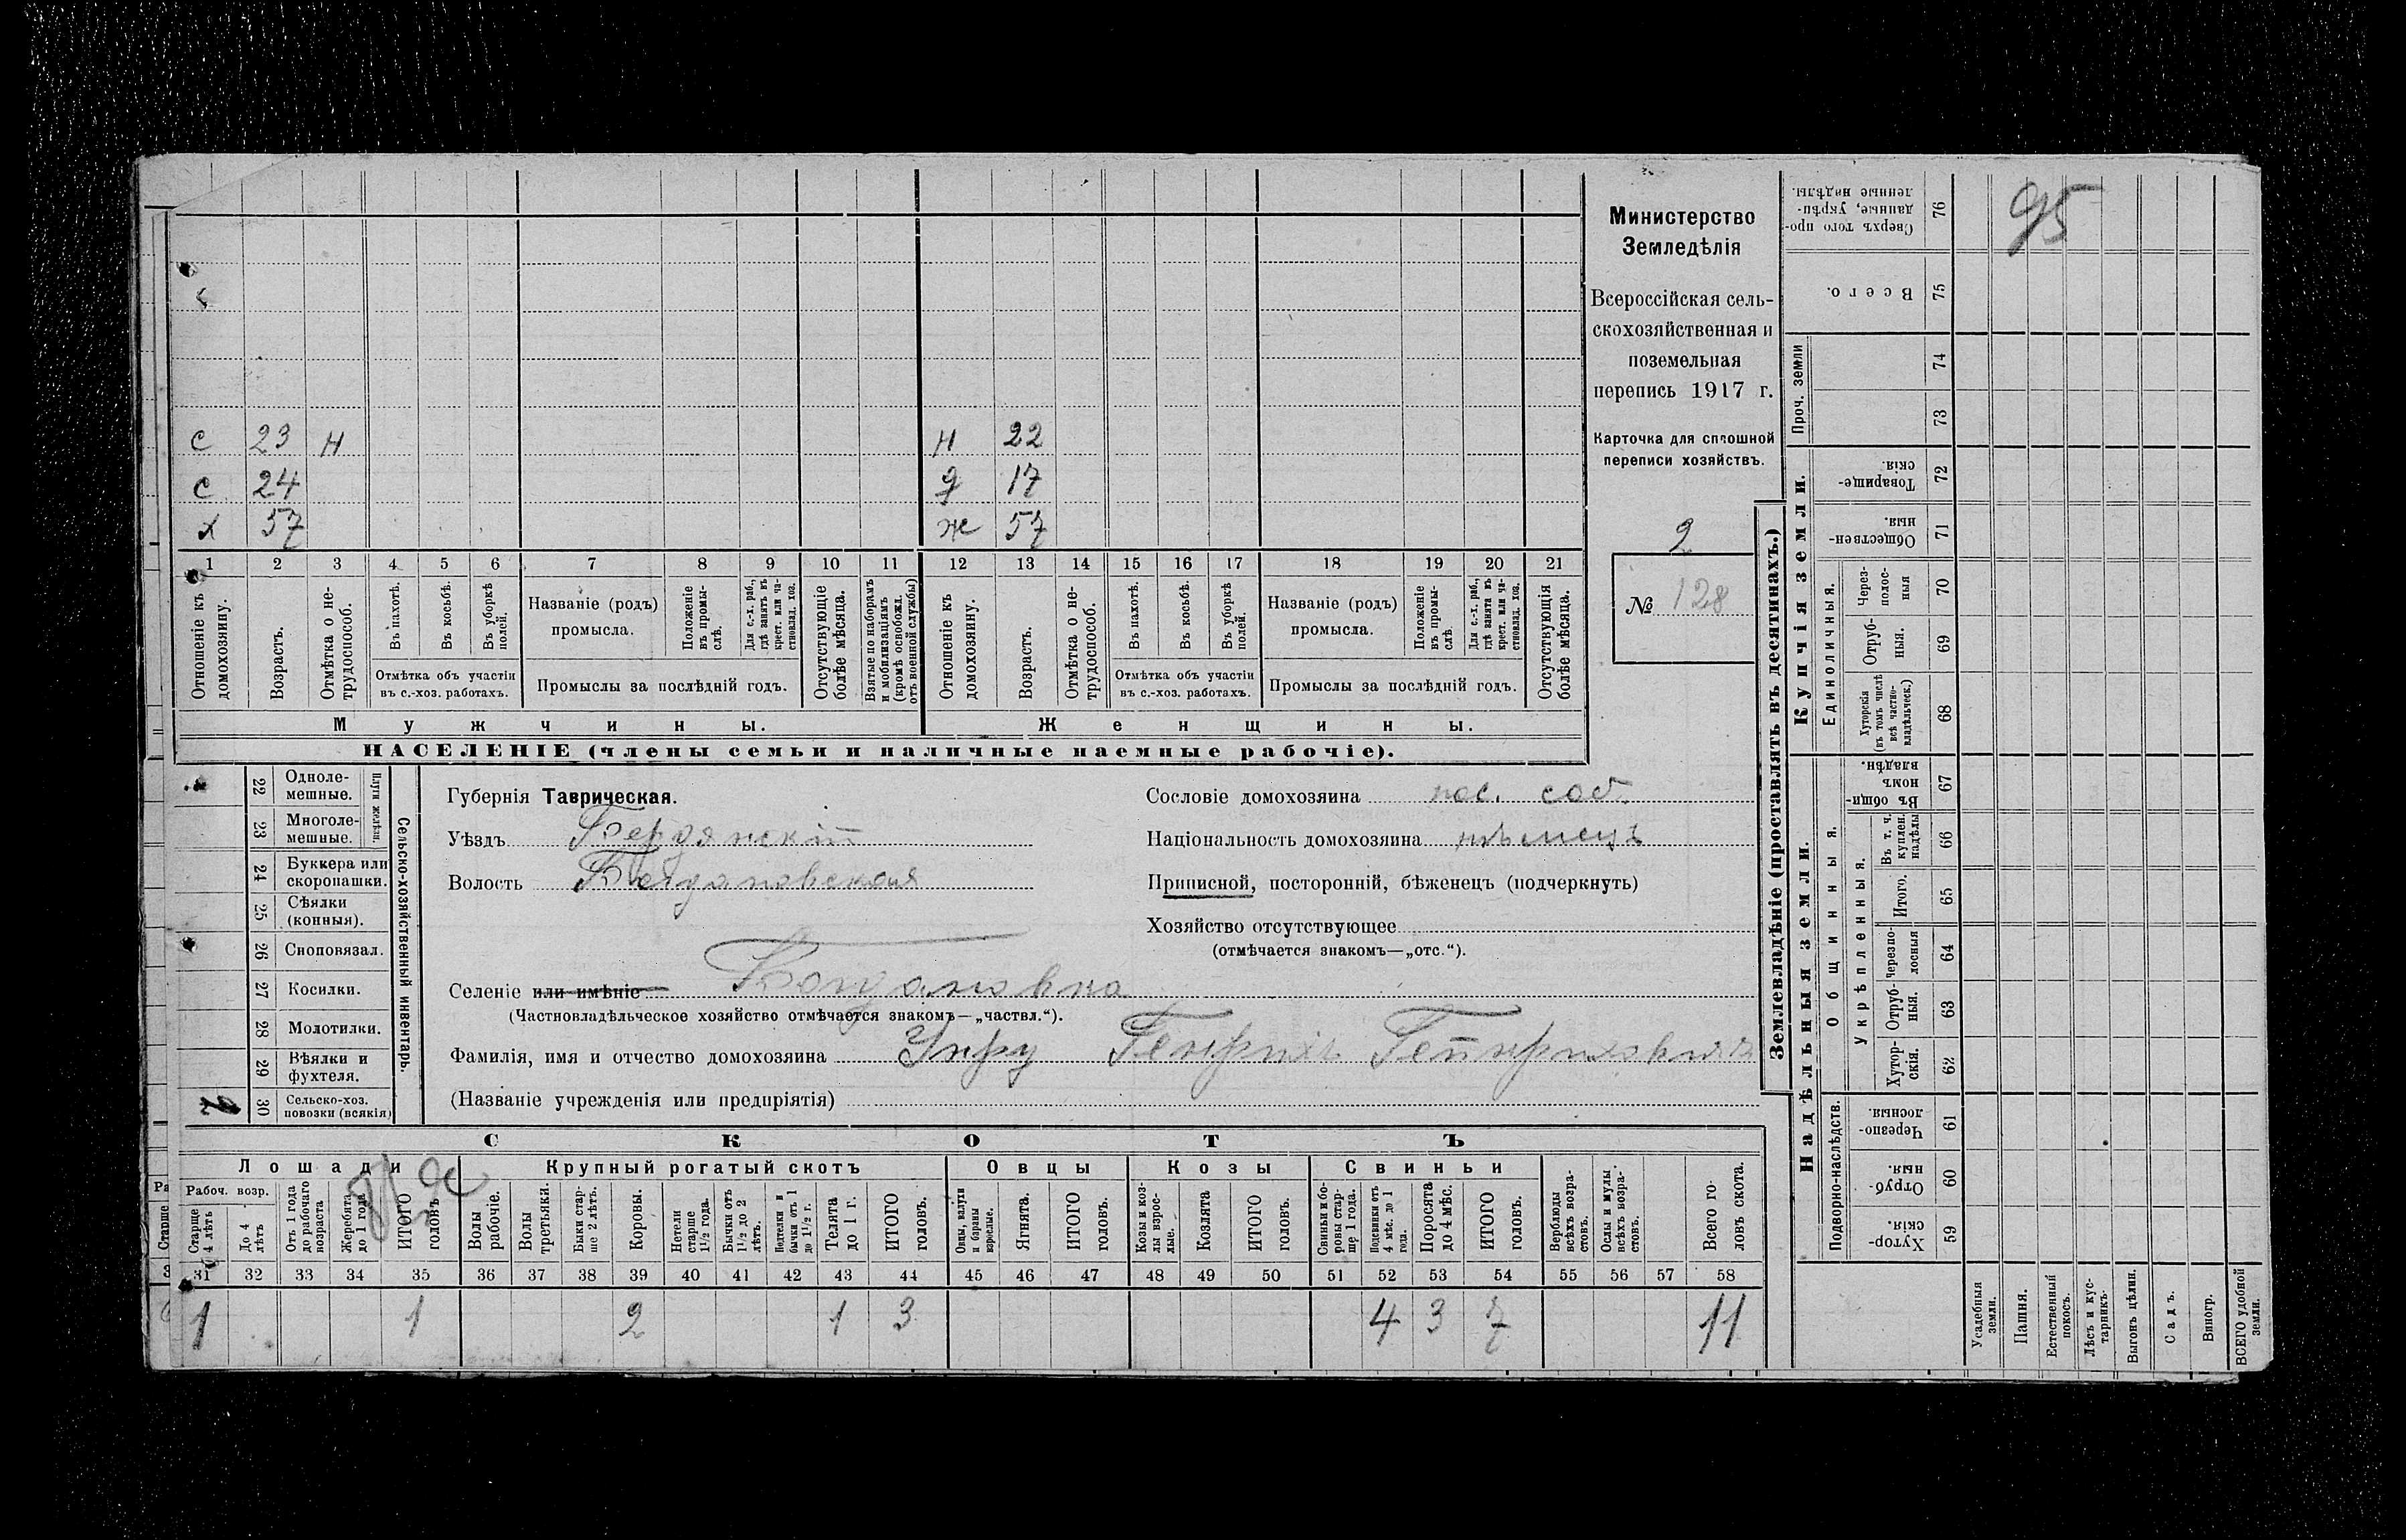 С 23 Н Н 22
С 24 д 17
х 57 ж 57
1 2 3 4 5 6 7 8 9 10 11 12 13 14 15 16 17 18 19 20 21
Отношеніе къ домохозяину.
Возрастъ.
Отмѣтка о не-
трудоспособ.
Въ пахотѣ.
Въ косьбѣ.
Въ уборкѣ полей.
Отмѣтка объ участіи
въ с.-хоз. работахъ.
Названіе (родъ)
промысла.
Положеніе въ промы-
слѣ.
Для с.-х. раб., гдѣ занятъ въ крест. или ча-
стновлад. хоз.
Промыслы за послѣдній годъ.
Отсутствующіе болѣе мѣсяца.
Взятые по наборамъ и мобилизаціямъ (кромѣ освобожд. отъ военной службы)
Отношеніе къ домохозяину.
Возрастъ.
Отмѣтка о не-
трудоспособ.
Въ пахотѣ.
Въ косьбѣ.
Въ уборкѣ полей.
Отмѣтка объ участіи
въ с.-хоз. работахъ.
Названіе (родъ)
промысла.
Положеніе въ промы-
слѣ.
Для с.-х. раб., гдѣ занята въ крест. или ча-
стновлад. хоз.
Промыслы за послѣдній годъ.
Отсутствующія болѣе мѣсяца.
Мужчины. Женщины.
НАСЕЛЕНІЕ (члены семьи и наличные наемные рабочіе).
Министерство
Земледѣлія
Всероссійская сель-
скохозяйственная и
поземельная
перепись 1917 г.
Карточка для сплошной
переписи хозяйствъ.
2
№ 128
22 Одноле-
мешные.
23 Многоле-
мешные.
Плуги желѣзн.
24 Буккера или
скоропашки.
25 Сѣялки
(конныя).
26 Сноповязал.
27 Косилки.
28 Молотилки.
29 Вѣялки и
фухтеля.
30 Сельско-хоз.
повозки (всякія)
Сельско-хозяйственный инвентарь.
Губернія Таврическая.
Уѣздъ Бердянскій
Волость Богдановская
Селеніе или имѣніе Богдановка
(Частновладѣльческое хозяйство отмѣчается знакомъ—„частвл.“).
Фамилія, имя и отчество домохозяина Унру Генрихъ Генриховичъ
(Названіе учрежденія или предпріятія)
Сословіе домохозяина пос. соб.
Національность домохозяина нѣмецъ
Приписной, посторонній, бѣженецъ (подчеркнуть)
Хозяйство отсутствующее
(отмѣчается знакомъ—„отс.“).
СКОТЪ
Лошади Крупный рогатый скотъ Овцы Козы Свиньи
Рабоч. возр.
Старше 4 лѣтъ
До 4 лѣтъ
Отъ 1 года до рабочаго возраста
Жеребята до 1 года
ИТОГО головъ
Волы рабочіе.
Волы третьяки.
Быки стар-
ше 2 лѣтъ.
Коровы.
Нетели старше 1½ года.
Бычки отъ 1½ до 2 лѣтъ.
Подтелки и бычки отъ 1 до 1½ г.
Телята до 1 г.
ИТОГО головъ.
Овцы, валухи и бараны взрослые.
Ягнята.
ИТОГО головъ.
Козы и коз-
лы взрос-
лые.
Козлята
ИТОГО головъ.
Свиньи и бо-
ровы стар-
ше 1 года.
Подсвинки отъ 4 мѣс. до 1 года.
Поросята до 4 мѣс.
ИТОГО головъ.
Верблюды всѣхъ возра-
стовъ.
Ослы и мулы всѣхъ возра-
стовъ.
Всего го-
ловъ скота.
31 32 33 34 35 36 37 38 39 40 41 42 43 44 45 46 47 48 49 50 51 52 53 54 55 56 57 58
1 1 2 1 3 4 3 7 11
Землевладѣніе (проставлять въ десятинахъ.)
Надѣльныя земли. Купчія земли.
Проч. земли
Подворно-наслѣдств.
Общинныя.
Укрѣпленныя.
Единоличныя.
Сверхъ того про-
данные, укрѣп-
ленные надѣлы. 76
Всего. 75
74
73
Товарище-
скія. 72
Обществен-
ныя. 71
Через-
полос-
ныя 70
Отруб-
ныя. 69
Хуторскія (въ томъ числѣ всѣ частно-
владѣльческ.) 68
Въ общин-
номъ владѣн. 67
Въ т. ч. куплен. надѣлы 66
Итого. 65
Черезпо-
лосныя 64
Отруб-
ныя. 63
Хутор-
скія. 62
Черезпо-
лосныя. 61
Отруб-
ныя. 60
Хутор-
скія. 59
Усадебныя земли.
Пашня.
Естественный покосъ.
Лѣсъ и кус-
тарникъ.
Выгонъ цѣлин.
Садъ.
Виногр.
ВСЕГО удобной земли.
95